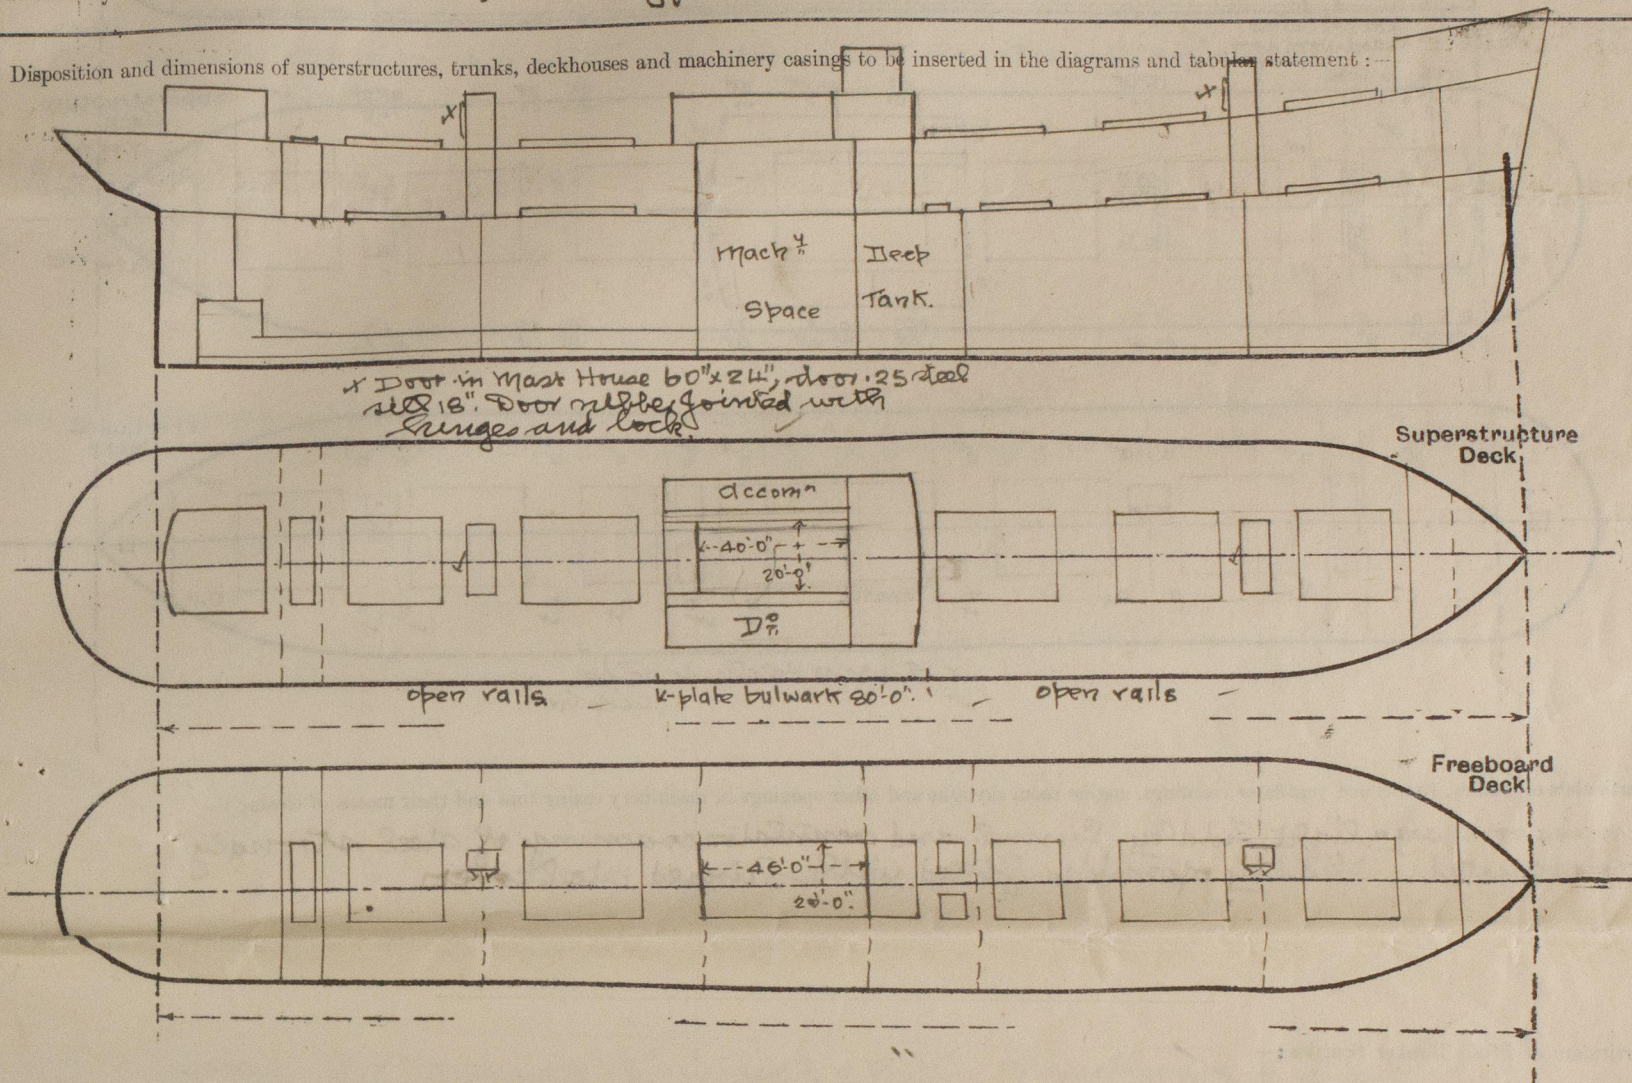 Disposition and dimensions of superstructures, trunks, deckhouses and machinery casings to be inserted in the diagrams and tabular statement :—
x
x
Mach'y
Space
Deep
Tank.
x Door in Mast House 60"x24", door .25 steel
sill 18". Door rubber jointed with
hinges and lock.
Superstructure
Deck
accomn
40'-0"
20'-0"
Do
open rails
plate bulwark 80'-0".
open rails
Freeboard
Deck
46'-0"